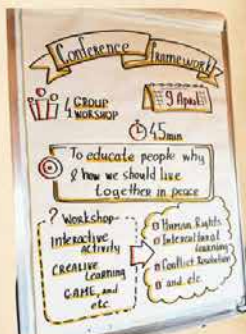 Conference framework
4 GROUP
WORSHOP
9 April
45 min
To educate people why
& how we should live
together in peace
? Workshop
Interactive
activity
CREALIVE
Learning
GAME, and
etc.
Human Rights
Intercultural
learning
Conflict Resolution
and etc.